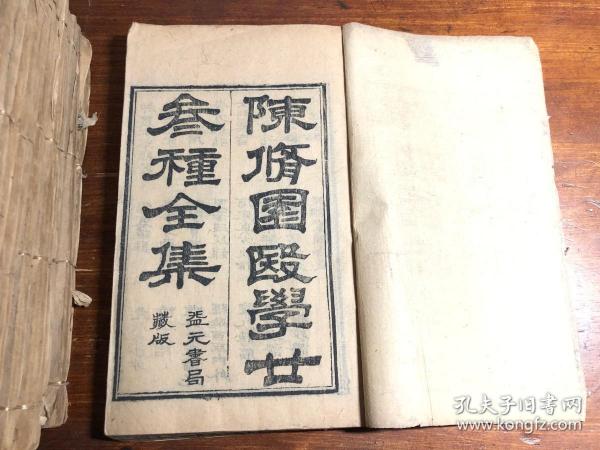 陳脩園醫學廿
叄種全集
益元書局
藏版
孔夫子旧书网
www.kongfz.com